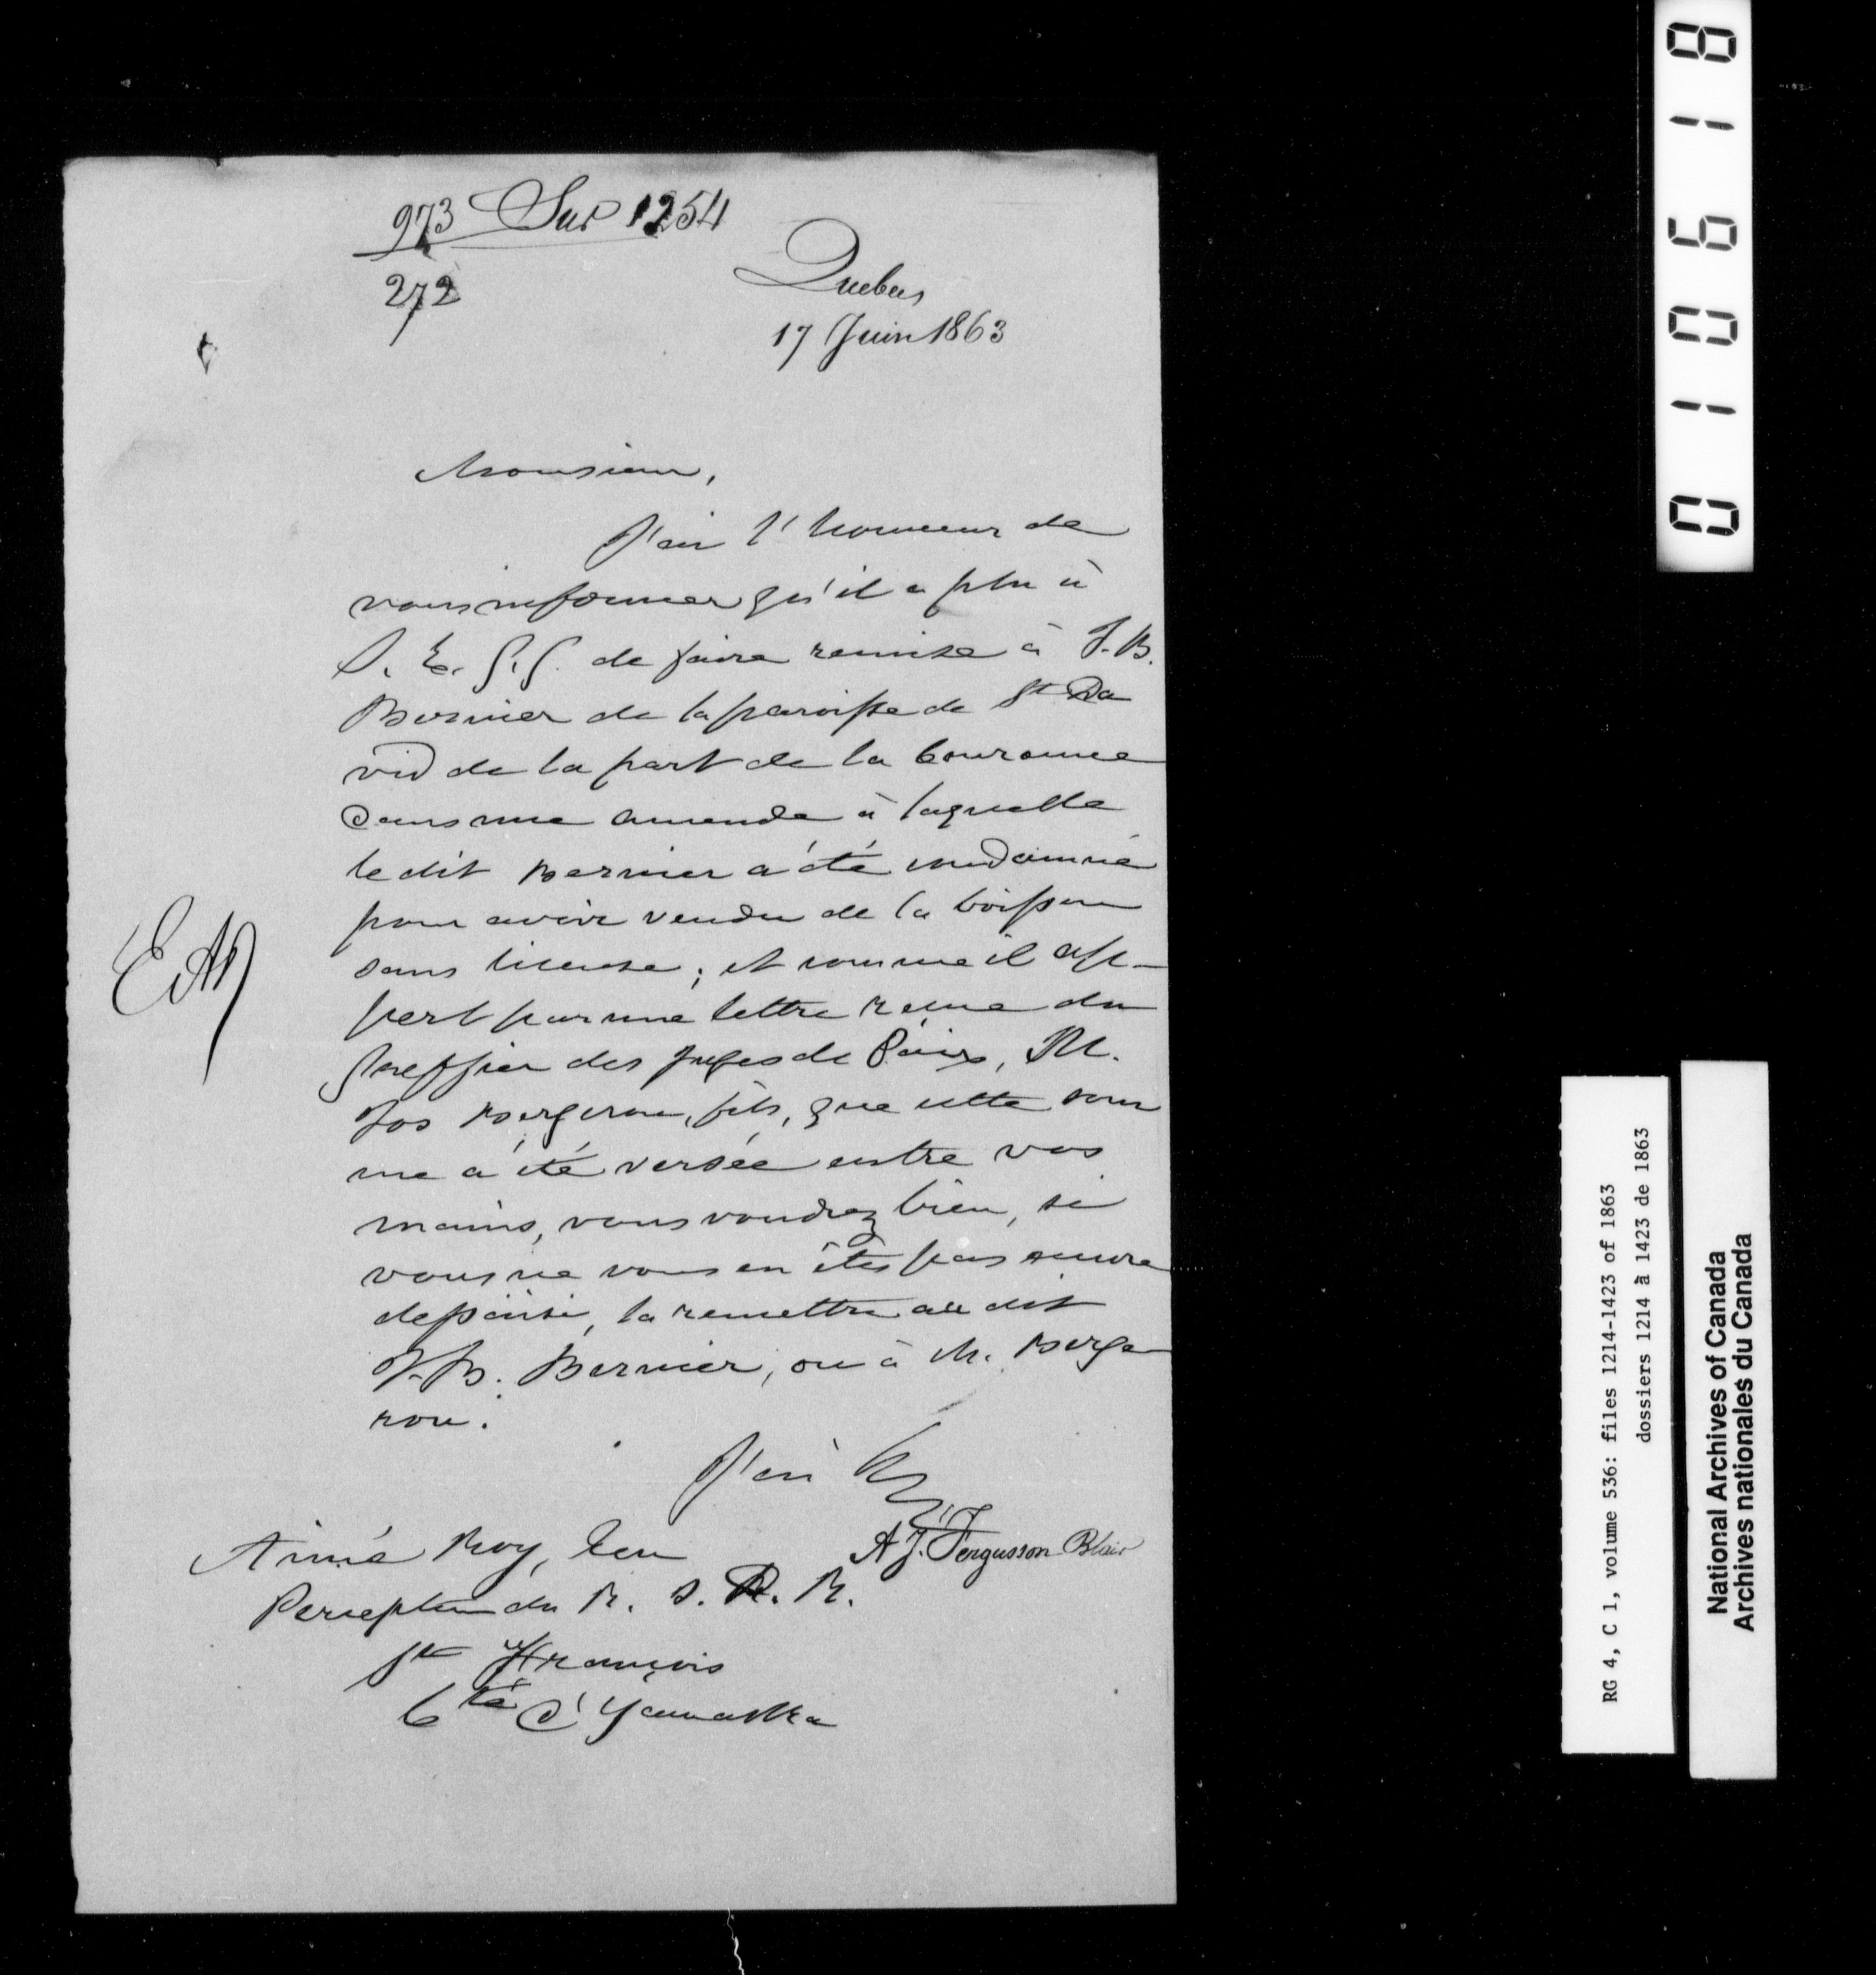 973 Sur 1254
272
Quebec
17 Juin 1863
Monsieur,
J'ai l'honneur de
vous informer qu'il a plu à
S. E. G. G. de faire remise à J. B.
Bernier de la paroisse de St Da
vid de la part de la Couronne
dans une amende à laquelle
le dit Bernier a été condamné
pour avoir vendu de la boisson
sans license ; et comme il ap-
pert par une lettre reçue du
Greffier des Juges de Paix, M.
Jos Bergeron, fils, que cette som
me a été versée entre vos
mains, vous voudrez bien, si
vous ne vous en êtes pas encore
depaisi, la remettre au dit
J. B. Bernier, ou à M. Berge
ron.
J'ai
A J. Fergusson Blair
Aimé Roy, Ecr
Percepteur du R. D. R.
St François
Cté d'Yamaska
010618
RG 4, C 1, volume 536: files 1214-1423 of 1863
dossiers 1214 à 1423 de 1863
National Archives of Canada
Archives nationales du Canada